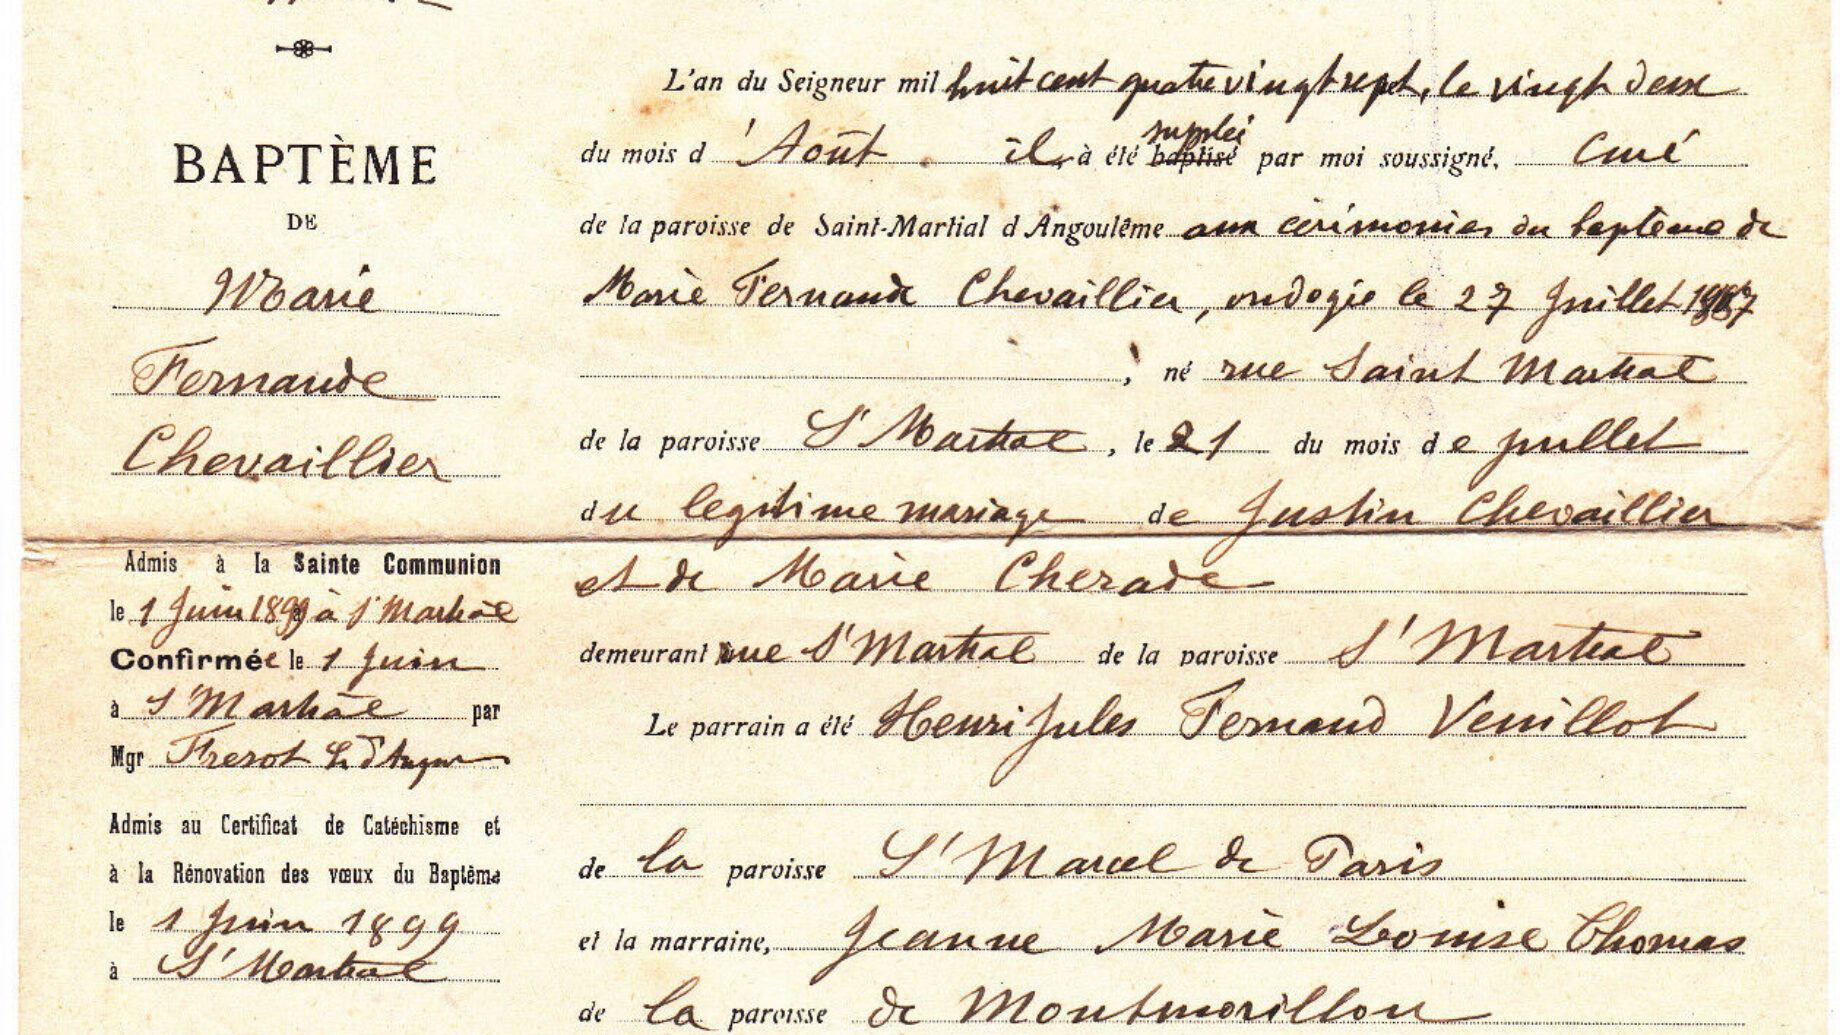 BAPTÈME
DE
Marie
Fernande
Chevaillier
Admis à la Sainte Communion
le 1 Juin 1899 à St Martial
Confirmée le 1 Juin
à St Martial par
Mgr Frerot
Admis au Certificat de Catéchisme et
à la Rénovation des vœux du Baptême
le 1 Juin 1899
à St Martial
L'an du Seigneur mil huit cent quatre vingt sept, le vingt deux
du mois d'Août. il, a été baptisé suppléé par moi soussigné, curé
de la paroisse de Saint-Martial d'Angoulême aux cérimonies du baptême de
Marie Fernande Chevaillier, ondoyie le 27 Juillet 1887
, né rue Saint Martial
de la paroisse St Martial, le 21 du mois de juillet
du legitime mariage de Justin Chevaillier
et de Marie Cherade
demeurant rue St Martial de la paroisse St Martial
Le parrain a été Henri Jules Fernand Venillot
de la paroisse St Marcel de Paris
et la marraine, Jeanne Marie Louise Thomas
de la paroisse de Montmorillon